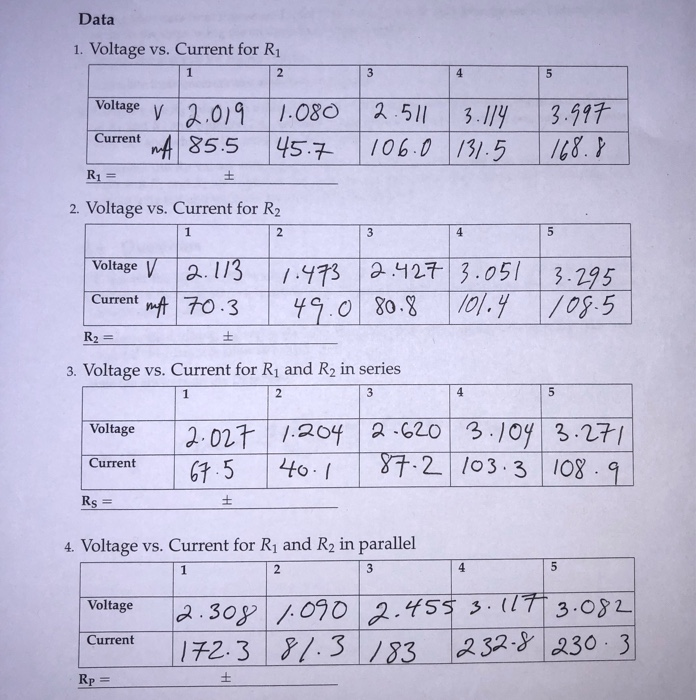 Data
1. Voltage vs. Current for R₁
1 2 3 4 5
Voltage V 2.019 1.080 2.511 3.114 3.997
Current mA 85.5 45.7 106.0 131.5 168.8
R₁ = ±
2. Voltage vs. Current for R₂
1 2 3 4 5
Voltage V 2.113 1.473 2.427 3.051 3.295
Current mA 70.3 49.0 80.8 101.4 108.5
R₂ = ±
3. Voltage vs. Current for R₁ and R₂ in series
1 2 3 4 5
Voltage 2.027 1.204 2.620 3.104 3.271
Current 67.5 40.1 87.2 103.3 108.9
Rs = ±
4. Voltage vs. Current for R₁ and R₂ in parallel
1 2 3 4 5
Voltage 2.308 1.090 2.455 3.117 3.082
Current 172.3 81.3 183 232.8 230.3
Rp = ±